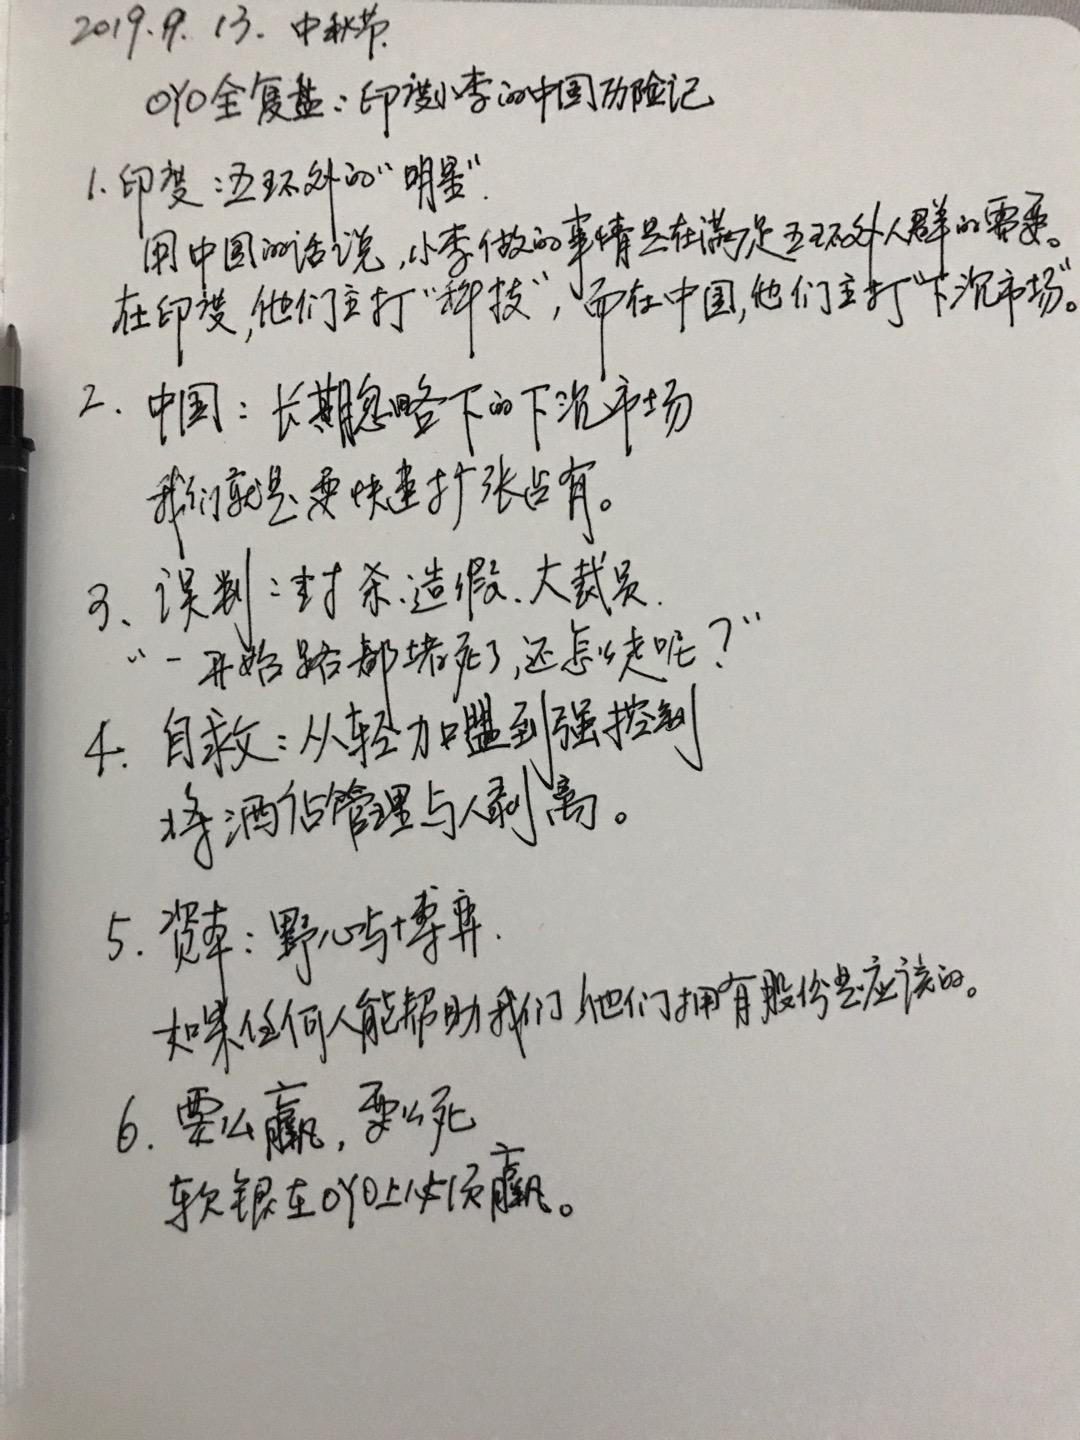 2019.9.13. 中秋节
OYO全复盘：印度小李的中国历险记
1. 印度：五环外的“明星”.
用中国的话说，小李做的事情是在满足五环外人群的需要。
在印度，他们主打“科技”，而在中国，他们主打“下沉市场”。
2. 中国：长期忽略下的下沉市场
我们就是要快速扩张占有。
3、误判：封杀、造假、大裁员.
“一开始路都堵死了，还怎么走呢？”
4. 自救：从轻加盟到强控制
将酒店管理与人剥离。
5. 资本：野心与博弈.
如果任何人能帮助我们，他们拥有股份是应该的。
6. 要么赢，要么死
软银在OYO上必须赢。